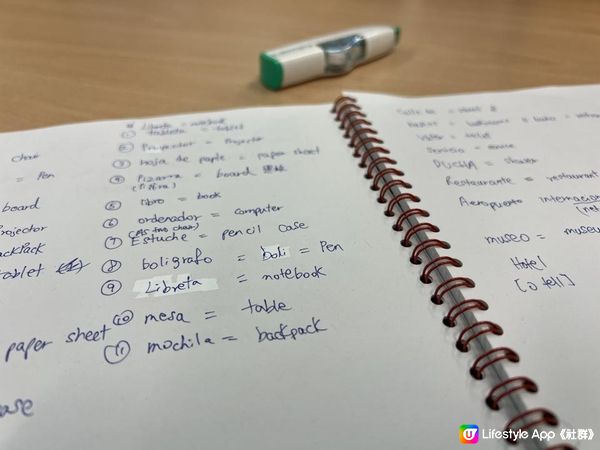 chair
= Pen
board
Projector
BackPack
tablet
paper sheet
case
Libreta =
① tableta = tablet
② Proyector = Projector
③ hoja de = paper sheet
④ Pizarra = board
⑤ libro = book
⑥ ordenador = computer
⑦ Estuche = pencil case
⑧ boligrafo = boli = Pen
⑨ Libreta = notebook
⑩ mesa = table
⑪ mochila = backpack
DUCHA = shower
Restaurante = restaurant
Aeropuerto internacio
museo = museu
Hotel
[o tell]
U Lifestyle App《社群》